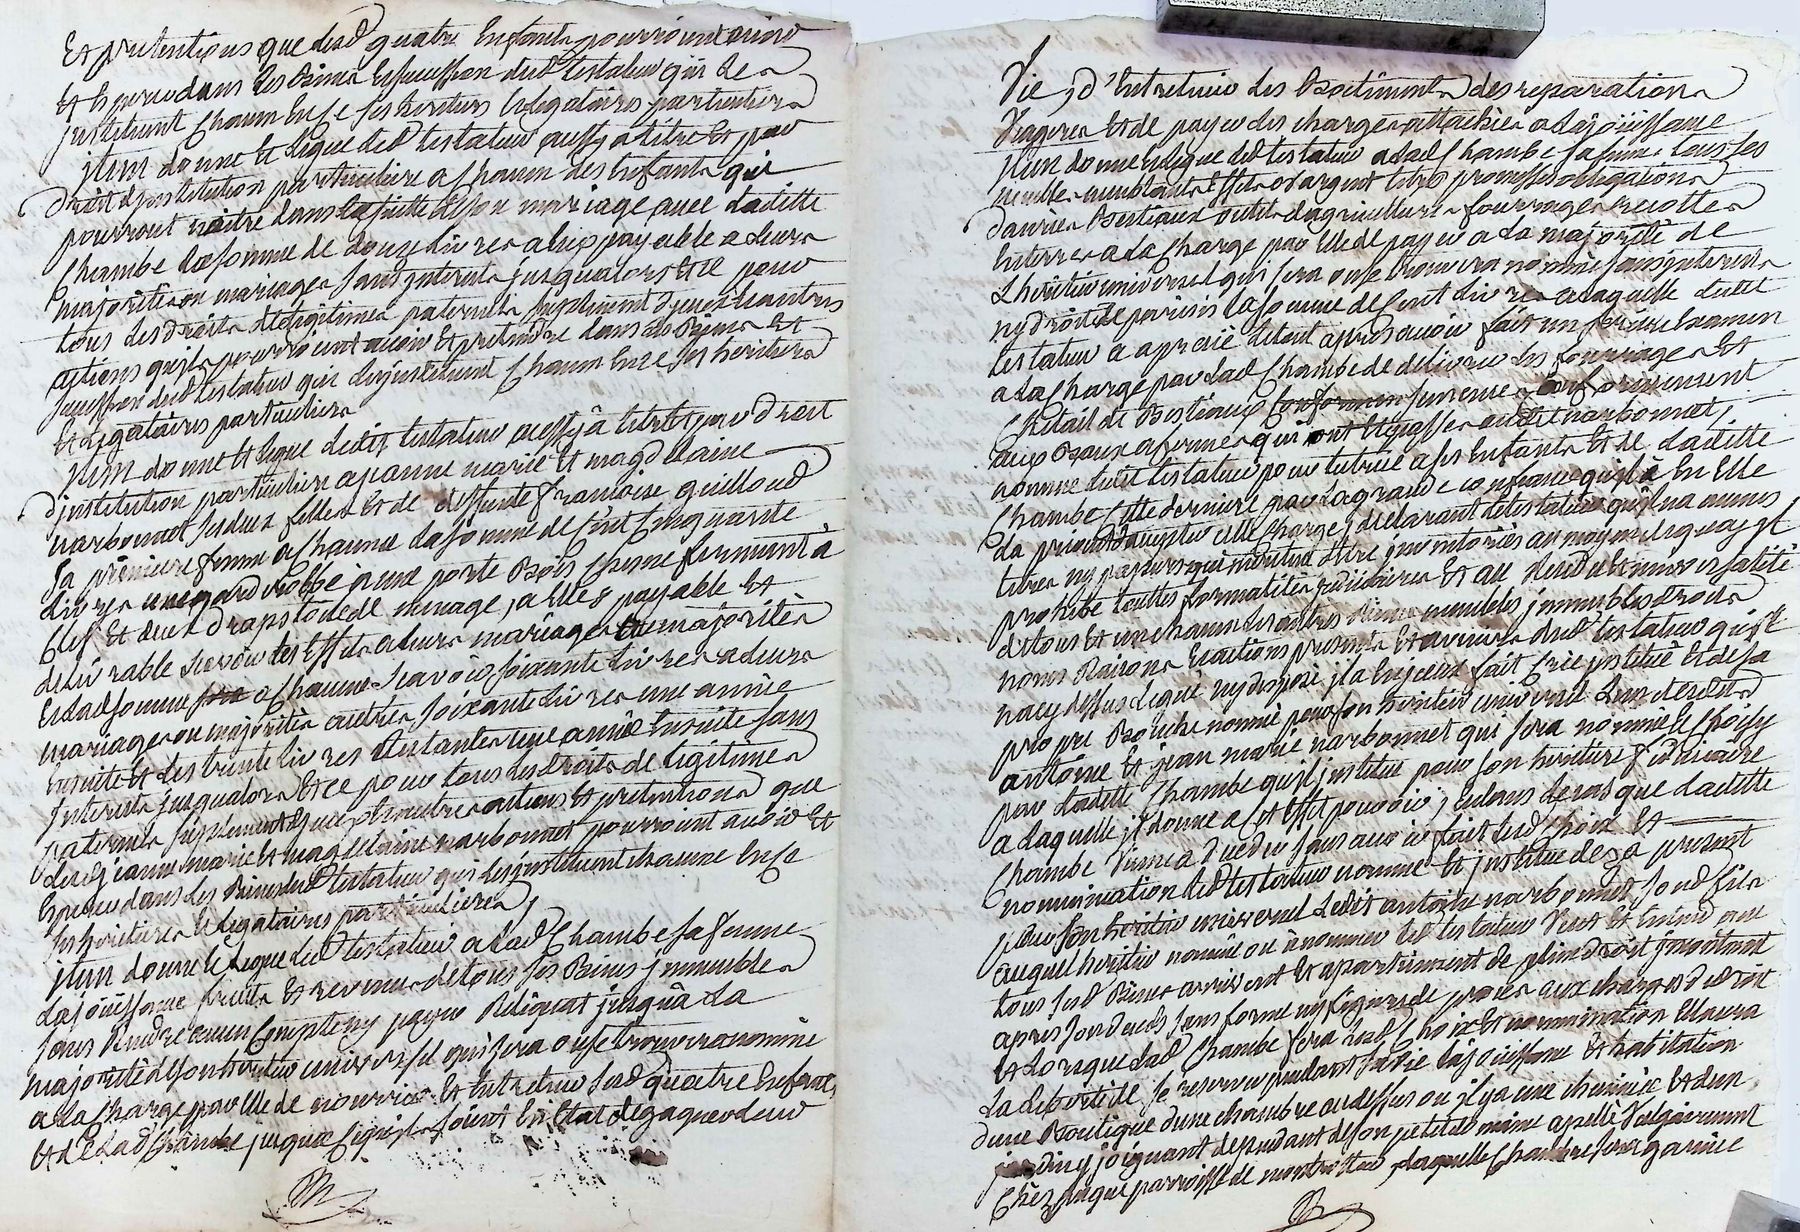 Et pretentions que lesd quatre Enfants pourroint avoir
Et Esperer dans les Biens Et succession dud testateur qui les
jnstituent Chacun En ce ses heritiers Et legataires particuliers
jtem donne Et legue led testateur aussy a titre Et par
Droit d'jnstitution particuliere a Chacun des Enfants qui
pourront naitre dans la suitte de son mariage avec ladite
Chambe la somme de douze livres a Eux payable a leurs
majorités ou mariages sans jnterets jusqu'alors Et ce pour
tous les droits de legitimes paternels suplement d'jceux Et autres
actions qu'jls pourroient avoir Et pretendre dans les Biens Et
succession dud testateur qui les jnstituent Chacun En ce ses heritiers
Et legataires particuliers
jtem donne Et legue ledit testateur aussy â titre Et par droit
D'jnstitution particuliere a jeanne marie Et magdelaine
narbonnet ses deux filles Et de deffunte françoise guilloud
sa premiere femme a Chacune la somme de Cent Cinquante
livres une garderobbe jeune porte Bois Chesne fermant â
Clef Et deux draps toile de menage, a Elles payable Et
delivrable scavoir les Effets a leurs mariages Et majorités
Et lad somme a Chacune scavoir soixante livres a leurs
mariages ou majorités autres soixante livres une année
Ensuite Et les trente livres Restantes une année Ensuite sans
jnterets jusqu'alors Et ce pour tous les droits de legitimes
paternels suplement d'jceux Et autres actions Et pretentions que
lesd jeanne marie Et magdelaine narbonnet pourront avoir Et
Esperer dans les Biens dud testateur qui les jnstituent Chacune En ce
ses heritieres Et legataires particulieres
jtem donne Et legue led testateur a lad Chambe sa femme
la joüissance fruits Et revenus de tous ses Biens jmmeubles
sans Rendre aucun Compte ny payer Reliquat jusqu'â la
majorité de son heritier universel qui sera ou se trouvera nommé
a la Charge par Elle de nourrir Et Entretenir sesd quatre Enfants
Et de lad Chambe jusqu'a ce qu'jls soient En Etat de gagner leur
Vie, d'Entretenir les Batiments des reparations
Viageres Et de payer les charges attachées a la joüissance
jtem donne Et legue led testateur a lad Chambe sa femme tous ses
meubles meublants Effets Or argent titres promesses obligations
danrées Bestiaux outils d'agriculture fourrages recoltes
Enterrées a la Charge par Elle de payer a la majorité de
L'heritier universel qui sera ou se trouvera nommé sans jnterets
ny droit de parisis la somme de Cent livres a laquelle ledit
testateur a aprecié letout apres avoir fait un serieux Examen
a la Charge par lad Chambe de delivrer les fourrages Et
Chetail de Bestiaux semences Conformement
aux Baux a ferme qui ont Eté passés audit narbonnet,
nomme ledit testateur pour tutrice a ses Enfants Et de ladite
Chambe Cette derniere par la grande confiance qu'jl â En Elle
la priant d'accepter cette Charge, declarant le testateur qu'jl n'a aucuns
titres ny papiers qui meritent d'Etre jnventoriés au moyen dequoy jl
prohibe touttes formalités judiciaires Et au Residu Et universalité
de tous Et un chacun ses autres Biens meubles jmmeubles droits
noms Raisons Et actions presents Et avenirs dud testateur qu'jl
n'a cy dessus legué ny disposé jl a En jceux fait Créé jnstitué Et de sa
propre Bouche nommé pour son heritier universel L'un desdits
antoine Et jean marie narbonnet qui sera nommé Et Choisy
par ladite Chambe qu'jl jnstitue pour son heritiere fiduciaire
a laquelle jl donne a Cet Effet pouvoir, Et dans le cas que ladite
Chambe Vienne a deceder sans avoir fait lesd Choix Et
nomination led testateur nomme Et jnstitue de ja present
pour son heritier universel Ledit antoine narbonnet, sond fils
auquel heritier nommé ou â nommer led testateur Veut Et Entend que
tous sesd Biens arrivent Et apartiennent de plein droit jncontinent
apres son deces sans forme ny figure de procés aux charges de droit
Et Lorsque Lad Chambe fera lesd Choix Et nomination Elle aura
La Liberté de se reserver pendant sa vie la joüissance Et habitation
d'une Boutique d'une chambre au dessus ou jl y a une cheminée Et d'un
jardin y joignant dependant de son petit domaine apellé Vulgairement
Chez parroisse de laquelle Chambre sera garnie